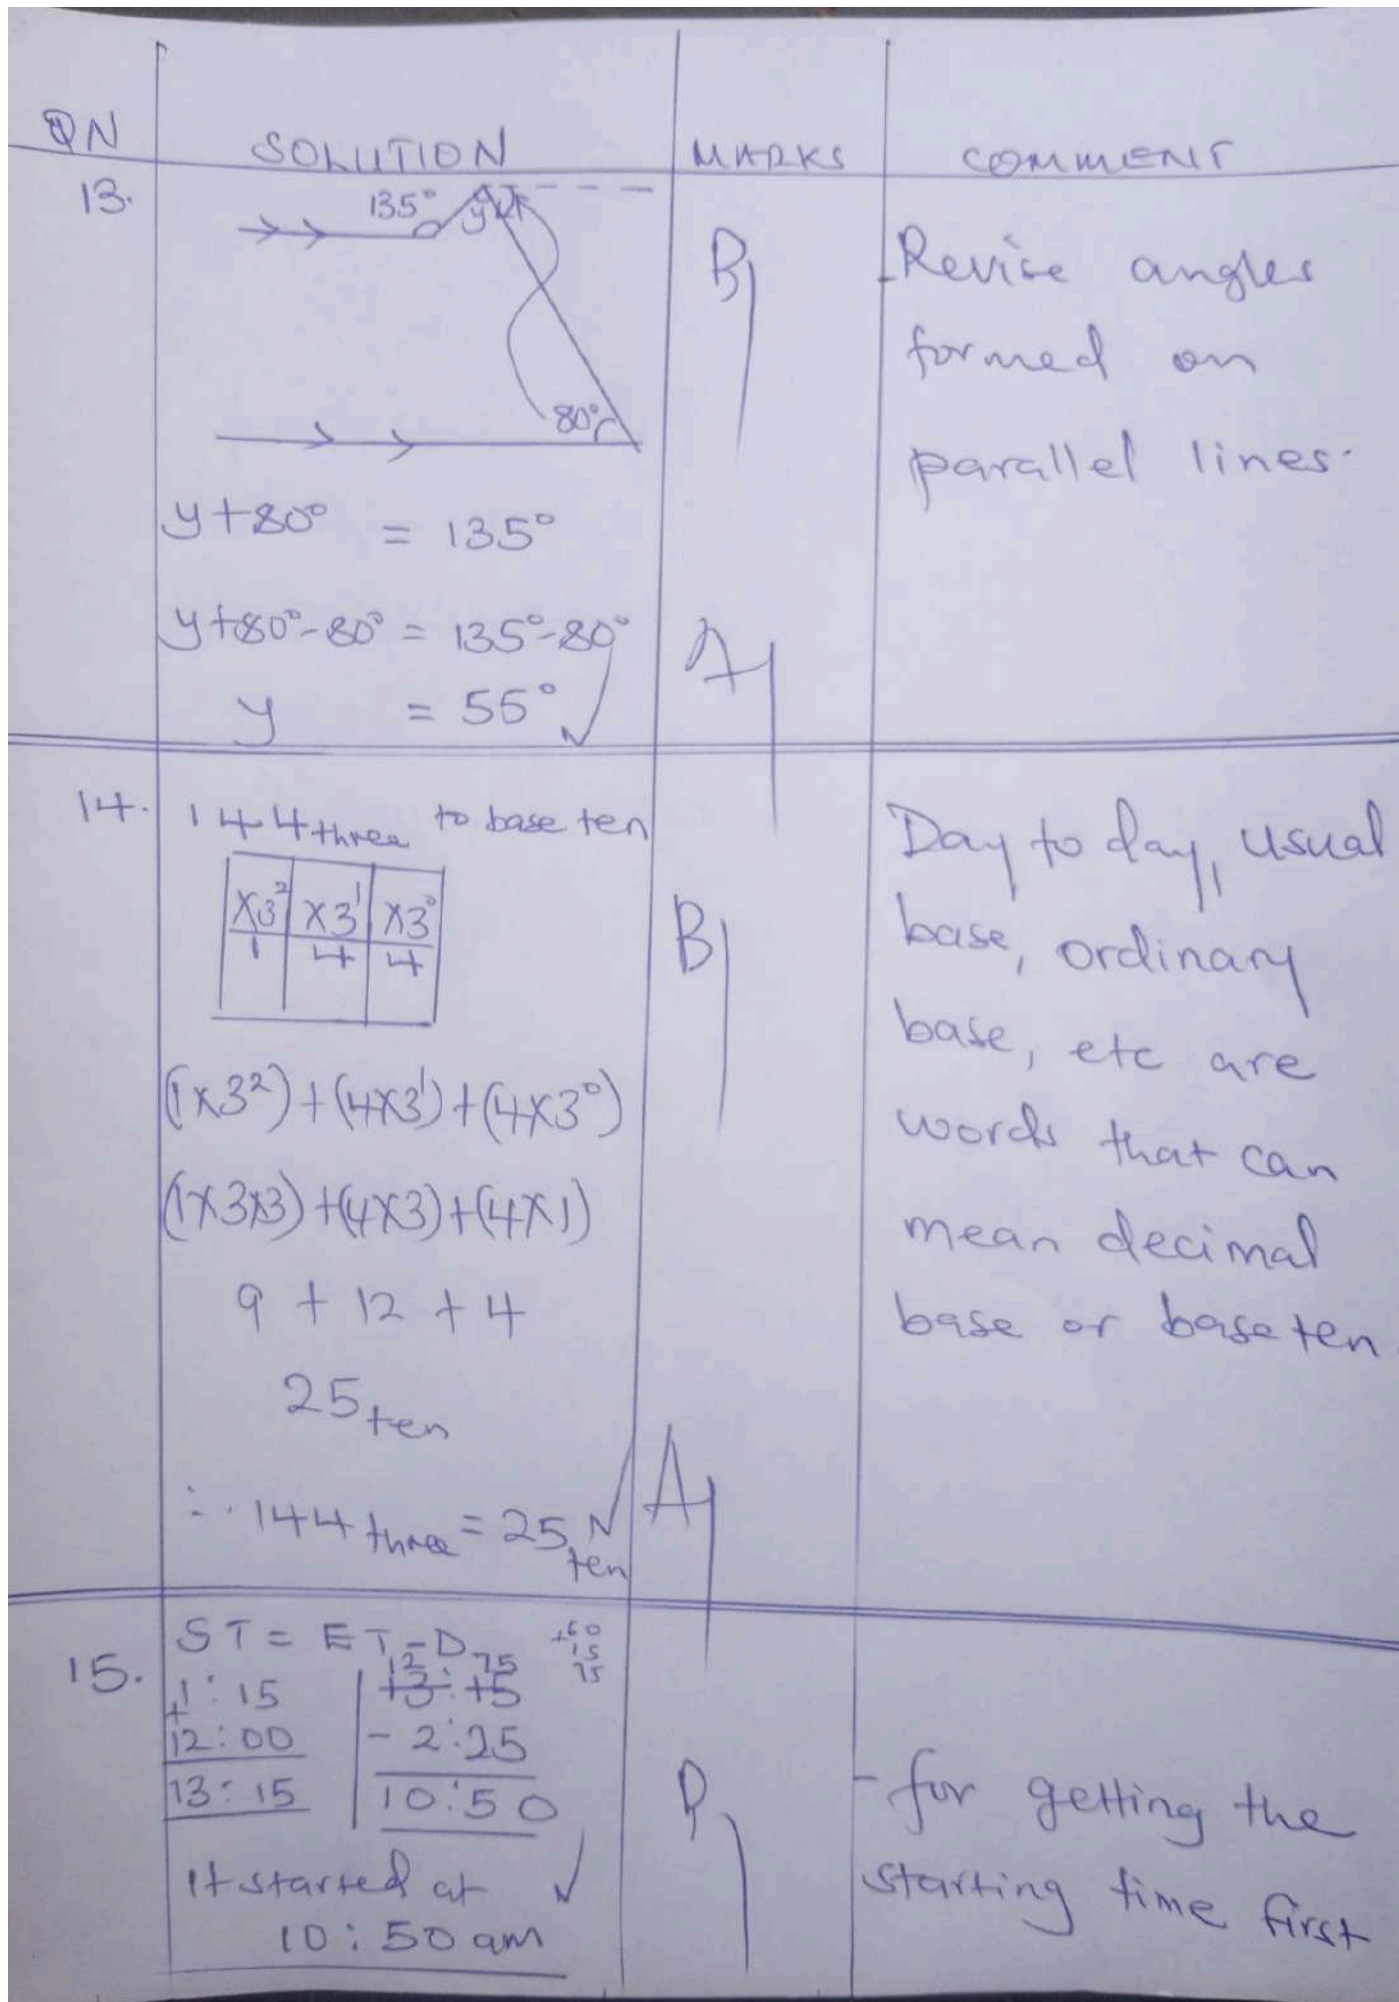 QN SOLUTION MARKS COMMENT
13.
135°
y
80°
B1
- Revise angles
formed on
parallel lines.
y+80° = 135°
y+80°-80° = 135°-80°
y = 55°
A1
14. 144three to base ten
×3² ×3¹ ×3⁰
1 4 4
(1×3²)+(4×3¹)+(4×3⁰)
(1×3×3)+(4×3)+(4×1)
9 + 12 + 4
25ten
∴ 144three = 25ten
B1
A1
Day to day, usual
base, ordinary
base, etc are
words that can
mean decimal
base or base ten.
15. ST = ET-D
+60
15
75
12 75
+1:15 13:15
12:00 - 2:25
13:15 10:50
It started at
10:50am
B1
- for getting the
starting time first